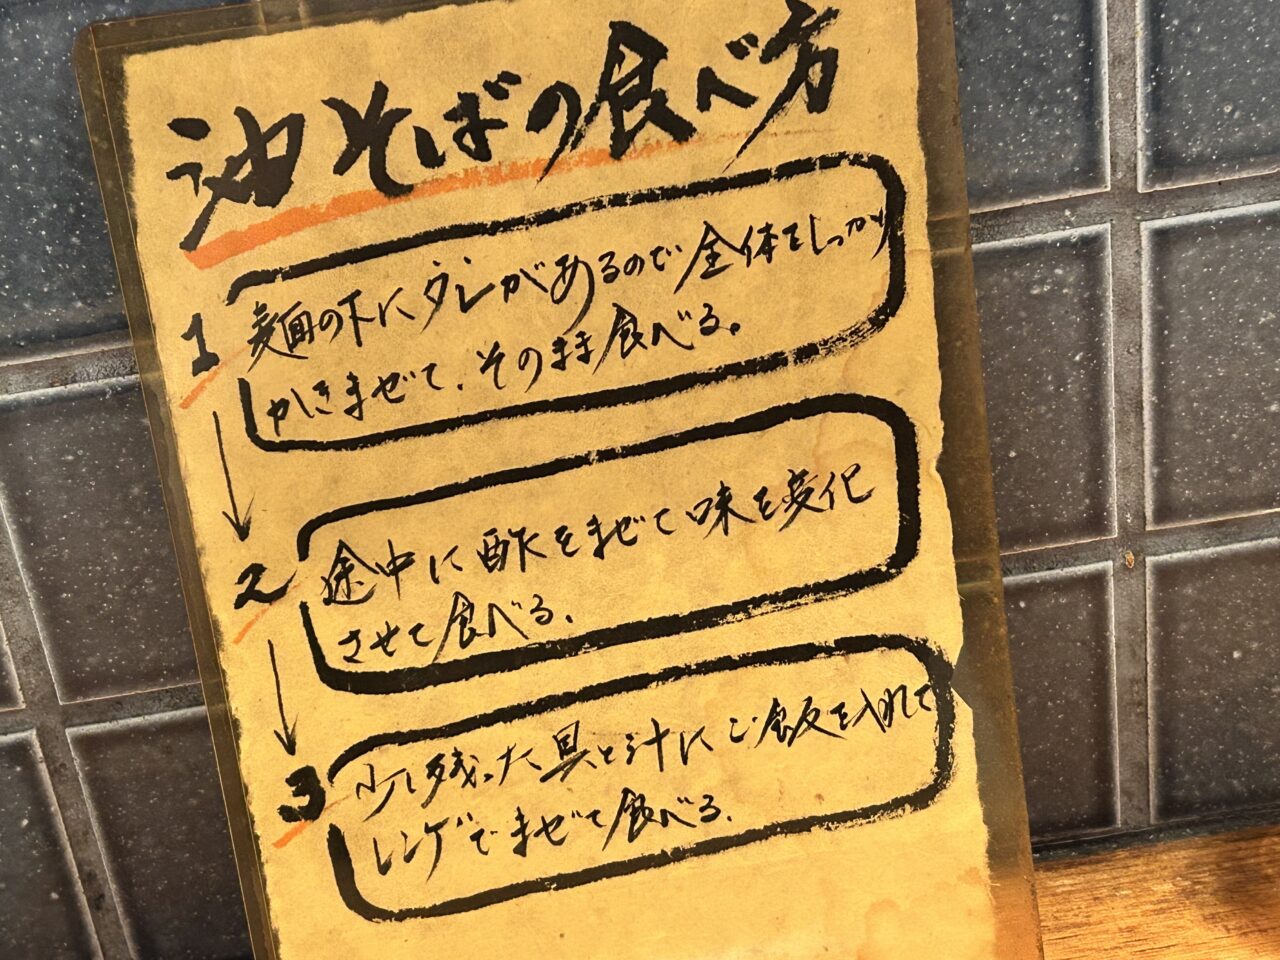 油そばの食べ方
1 麺の下にダレがあるので全体をしっかり
かきまぜて、そのまま食べる。
↓
2 途中に酢をまぜて味を変化
させて食べる。
↓
3 少し残った具と汁にご飯を入れて
レンゲでまぜて食べる。